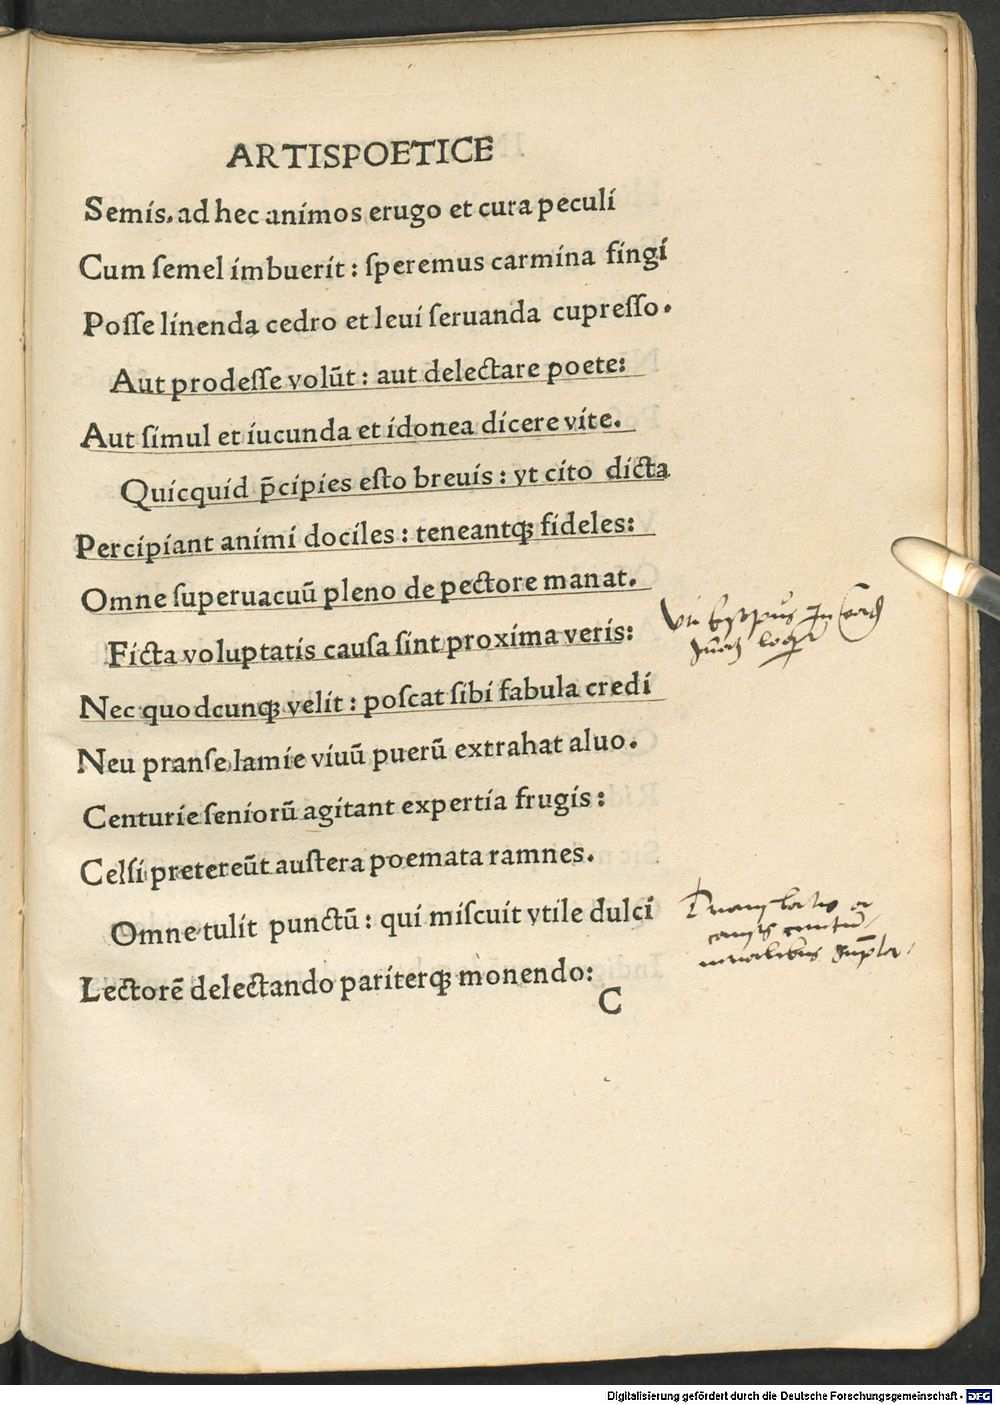 ARTISPOETICE
Semis. ad hec animos erugo et cura peculi
Cum ſemel imbuerit : ſperemus carmina fingi
Poſſe linenda cedro et leui ſeruanda cupreſſo.
Aut prodeſſe volūt : aut delectare poete:
Aut ſimul et iucunda et idonea dicere vite.
Quicquid p̄cipies eſto breuis : vt cito dicta
Percipiant animi dociles : teneantqꝫ fideles:
Omne ſuperuacuū pleno de pectore manat.
Ficta voluptatis cauſa ſint proxima veris:
Nec quodcunqꝫ velit : poſcat ſibi fabula credi
Neu pranſe lamie viuū puerū extrahat aluo.
Centurie ſeniorū agitant expertia frugis :
Celſi pretereūt auſtera poemata ramnes.
Omne tulit punctū : qui miſcuit vtile dulci
Lectorē delectando pariterqꝫ monendo:
C
Digitalisierung gefördert durch die Deutsche Forschungsgemeinschaft - DFG